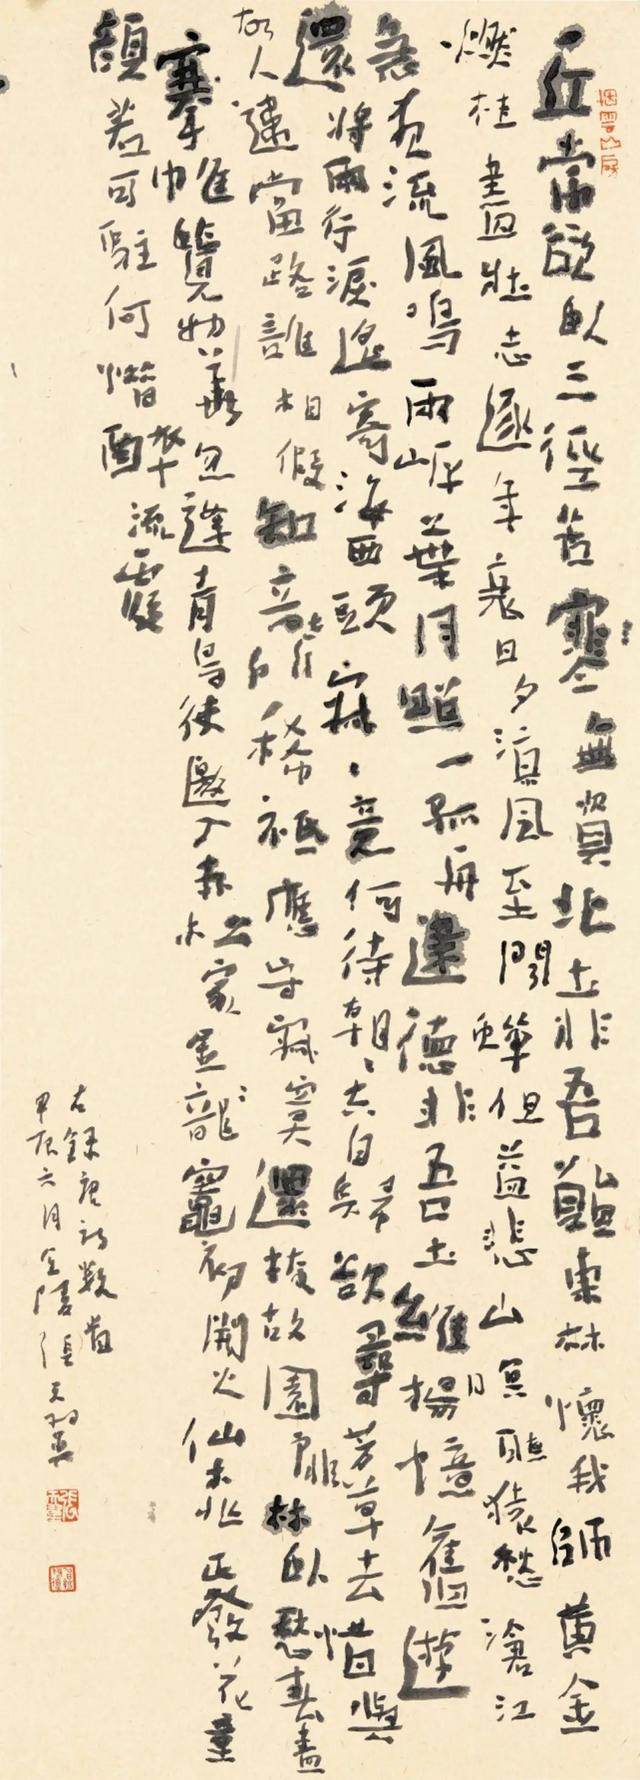 一丘常欲臥三徑苦寒無資北土非吾願東林懷我師黃金
燃桂盡壯志逐年衰日夕涼風至聞蟬但益悲山暝聽猿愁滄江
急夜流風鳴兩岸葉月照一孤舟建德非吾土維揚憶舊遊
還將兩行淚遙寄海西頭寂〻竟何待朝〻空自歸欲尋芳草去惜與
故人違當路誰相假知音世所稀祗應守寂寞還掩故園扉林臥愁春盡
搴帷覽物華忽逢青鳥使邀入赤松家金龍竈初開火仙桃正發花童
顏若可駐何惜醉流霞
右錄唐詩數首
甲辰六月金陵張天翼